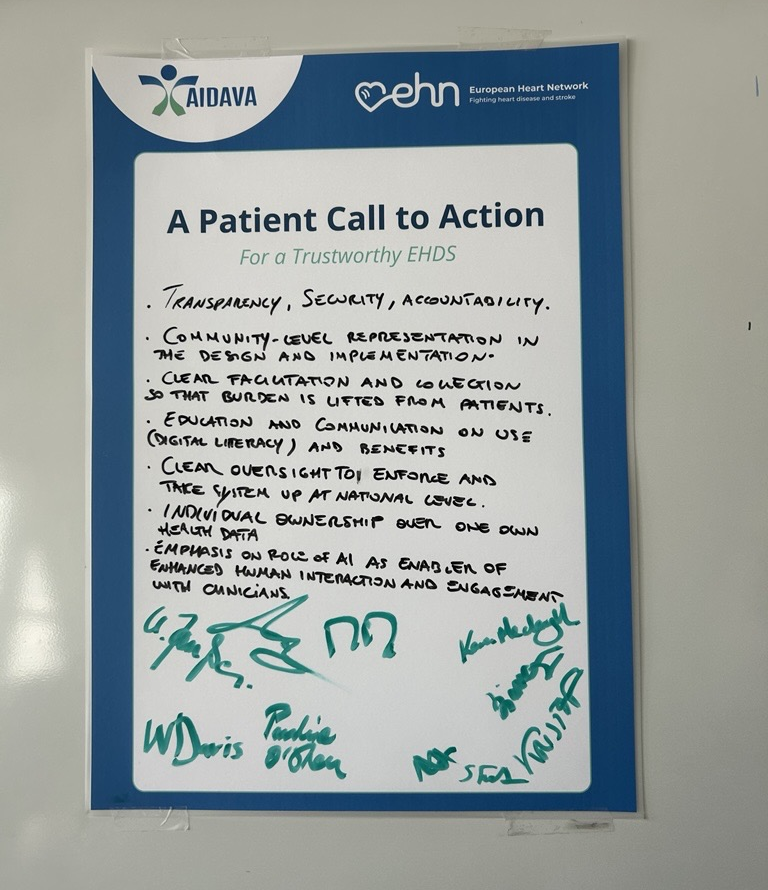 AIDAVA
ehn
European Heart Network
Fighting heart disease and stroke
A Patient Call to Action
For a Trustworthy EHDS
. TRANSPARENCY, SECURITY, ACCOUNTABILITY.
. COMMUNITY-LEVEL REPRESENTATION IN
THE DESIGN AND IMPLEMENTATION.
. CLEAR FACILITATION AND COLLECTION
SO THAT BURDEN IS LIFTED FROM PATIENTS.
. EDUCATION AND COMMUNICATION ON USE
(DIGITAL LITERACY) AND BENEFITS
. CLEAR OVERSIGHT TO ENFORCE AND
TAKE SYSTEM UP AT NATIONAL LEVEL.
. INDIVIDUAL OWNERSHIP OVER ONE OWN
HEALTH DATA
. EMPHASIS ON ROLE OF AI AS ENABLER OF
ENHANCED HUMAN INTERACTION AND ENGAGEMENT
WITH CLINICIANS.
WDavis
Pauline